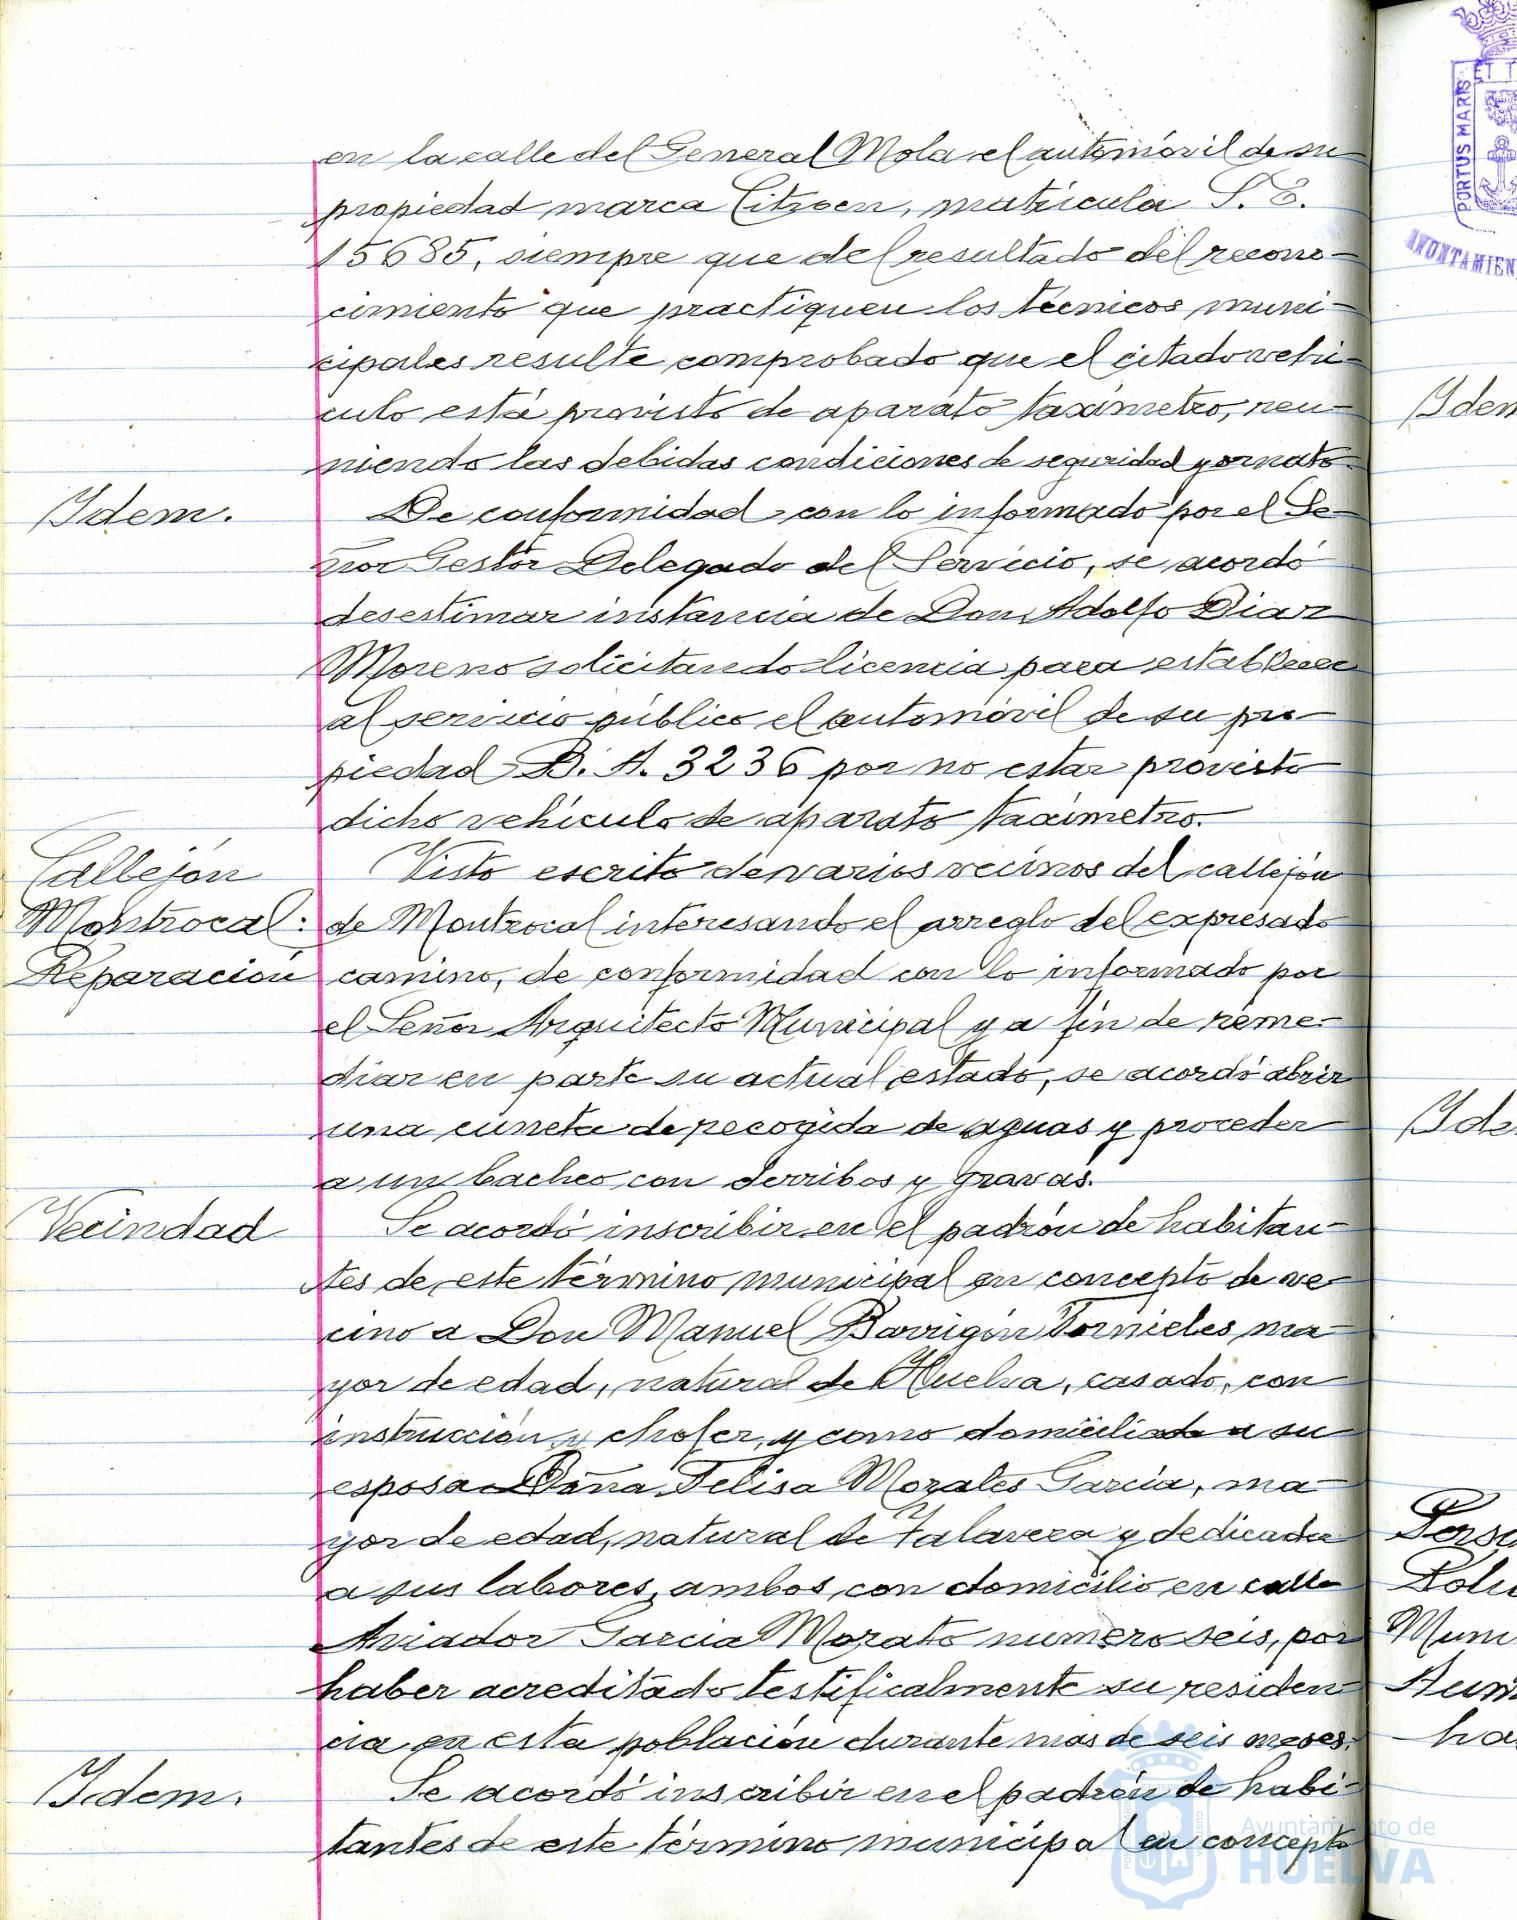 en la calle del General Mola el automóvil de su
propiedad marca Citroen, matricula S. E.
15685, siempre que del resultado del recono-
cimiento que practiquen los técnicos muni-
cipales resulte comprobado que el citado vehi-
culo está provisto de aparato taxímetro, reu-
niendo las debidas condiciones de seguridad y ornato.
Idem.
De conformidad con lo informado por el Se-
ñor Gestor Delegado del Servicio, se acordó
desestimar instancia de Don Adolfo Diaz
Moreno solicitando licencia para establecer
al servicio público el automóvil de su pro-
piedad B. A. 3236 por no estar provisto
dicho vehículo de aparato taxímetro.
Callejón
Montrocal:
Reparación
Visto escrito de varios vecinos del callejón
de Montrocal interesando el arreglo del expresado
camino, de conformidad con lo informado por
el Señor Arquitecto Municipal y a fin de reme-
diar en parte su actual estado, se acordó abrir
una cuneta de recogida de aguas y proceder
a un bacheo con derribos y gravas.
Vecindad
Se acordó inscribir en el padrón de habitan-
tes de este término municipal en concepto de ve-
cino a Don Manuel Barrigón Tornieles ma-
yor de edad, natural de Huelva, casado, con
instrucción y chofer, y como domiciliada a su
esposa Doña Felisa Morales García, ma-
yor de edad, natural de Talavera y dedicada
a sus labores, ambos con domicilio en calle
Aviador Garcia Morato numero seis, por
haber acreditado testificalmente su residen-
cia en esta población durante mas de seis meses.
Idem.
Se acordó inscribir en el padrón de habi-
tantes de este término municipal en concepto
Ayuntamiento de
HUELVA
PORTUS MARIS
ET T
AYUNTAMIEN
Idem
Ide
Perso
Muni
ha